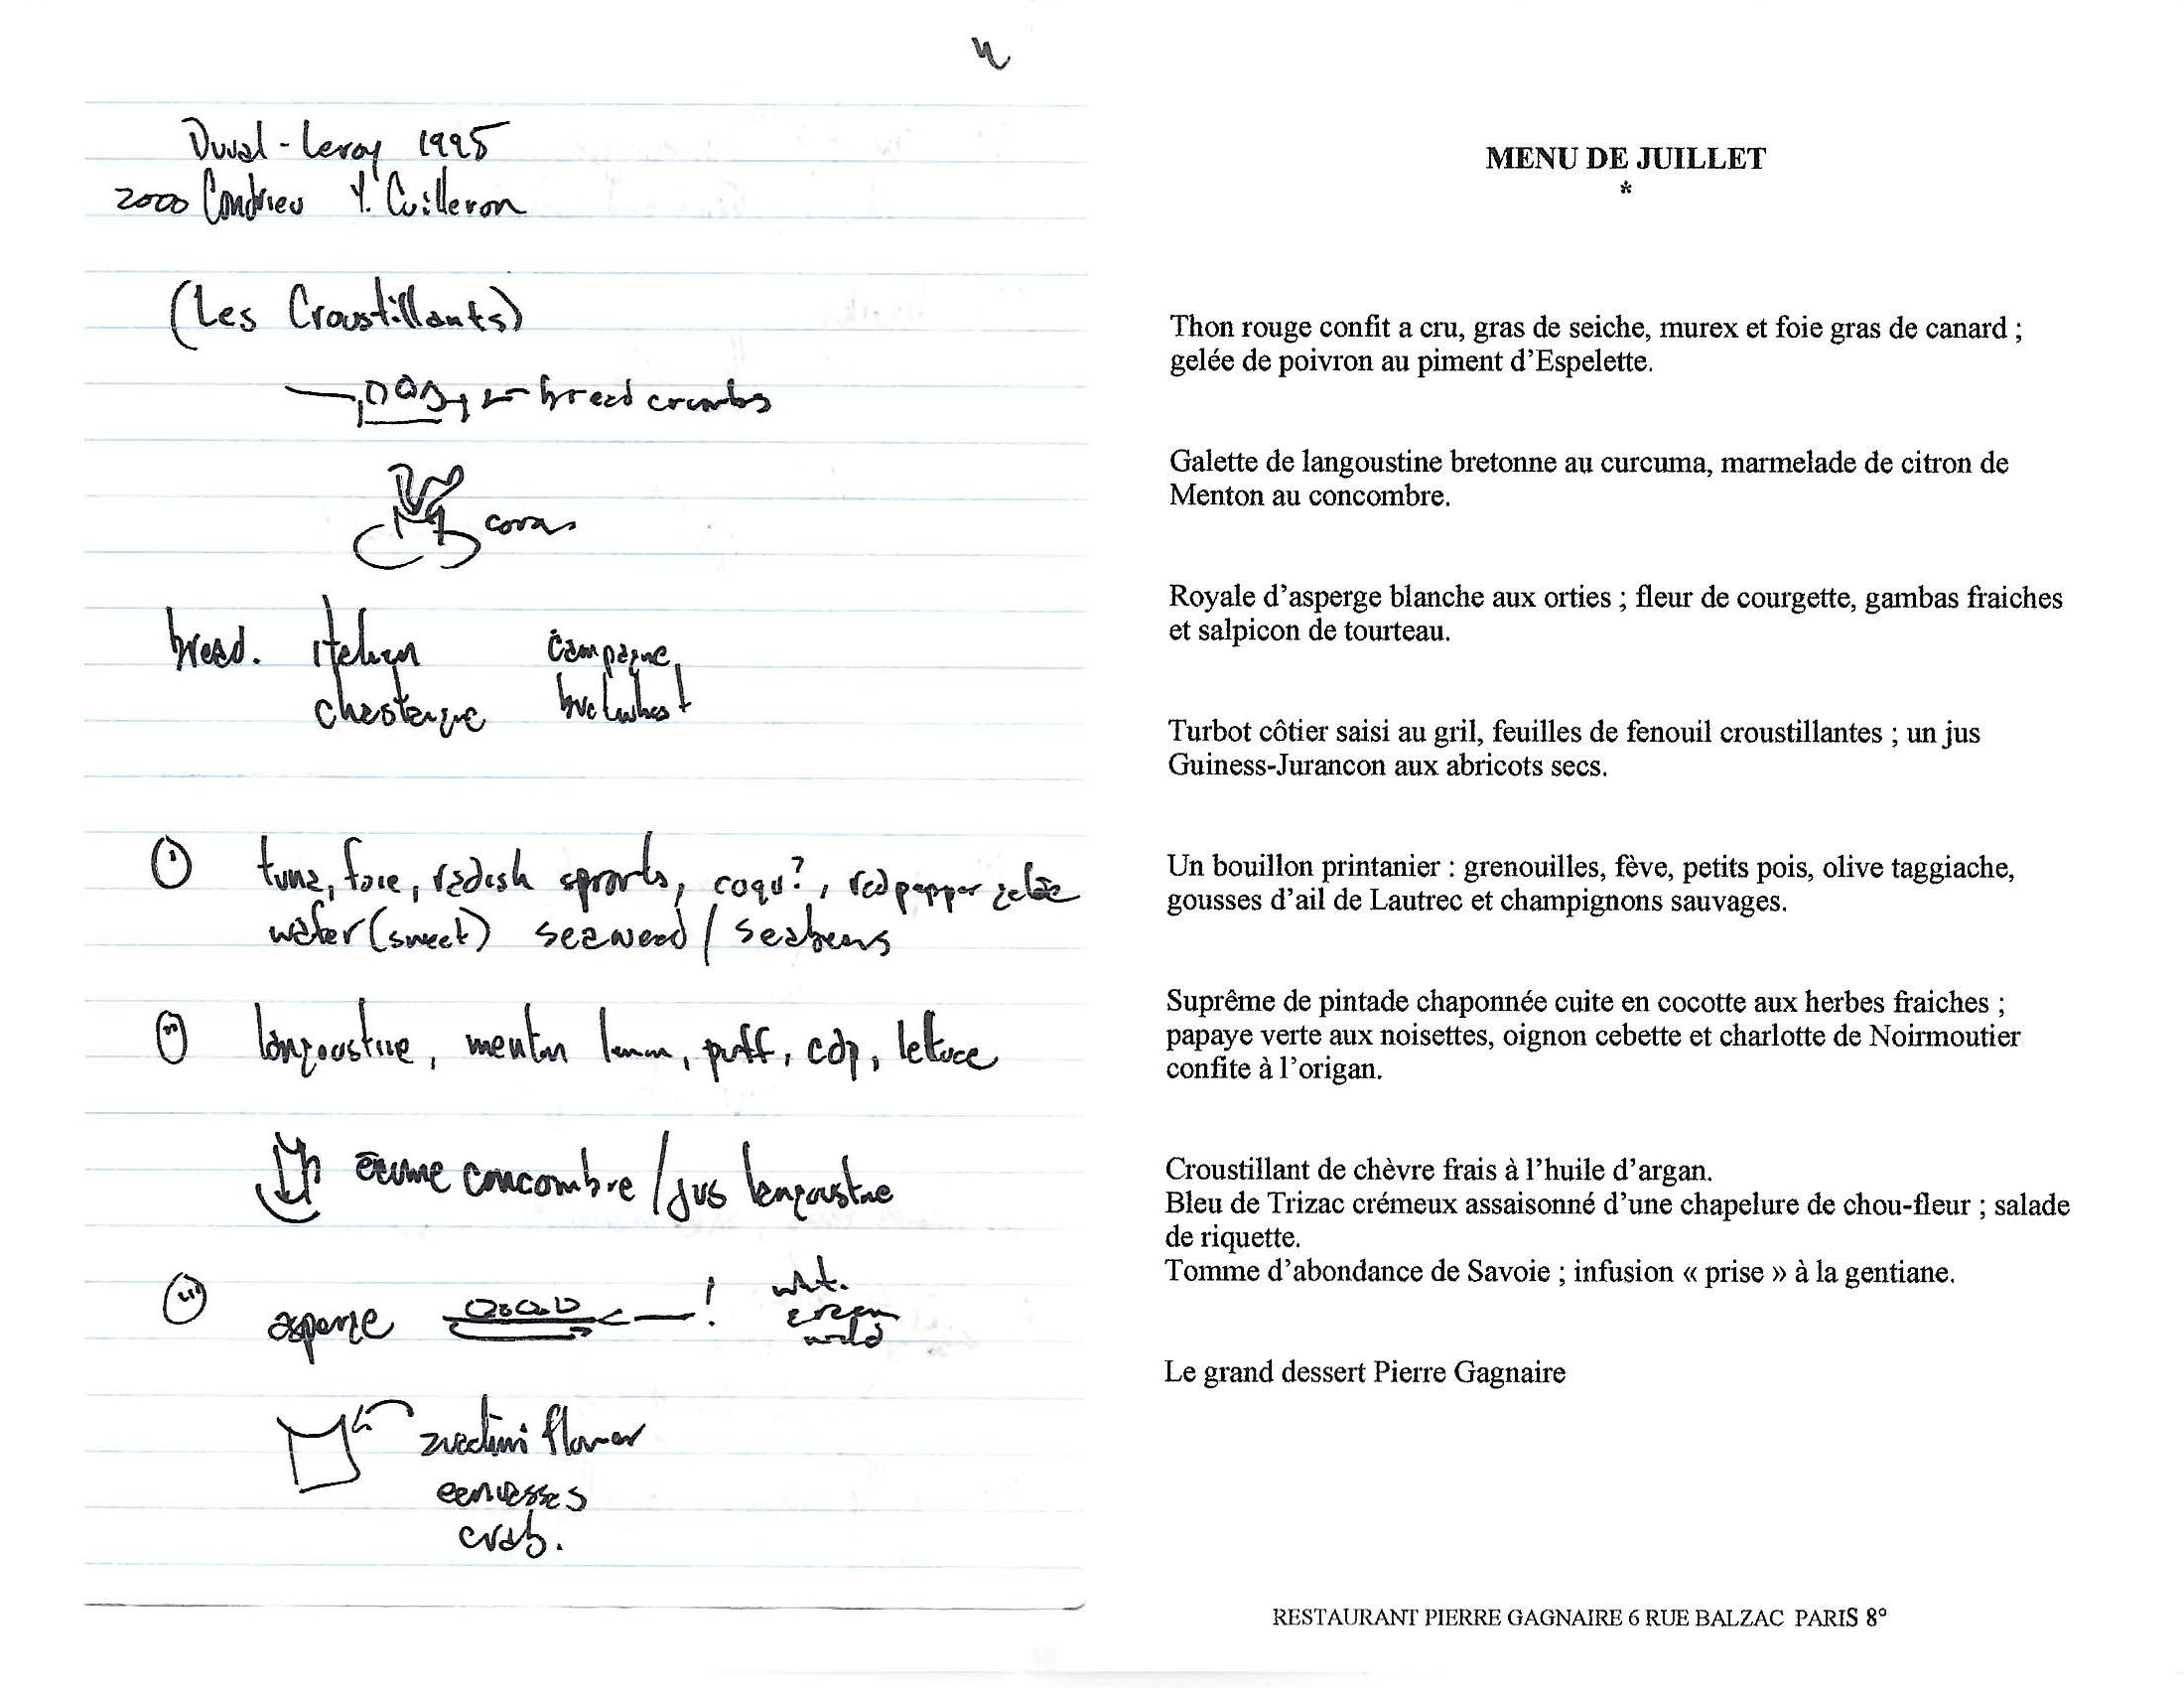 Duval-Leroy 1995
2000 Condrieu Y. Cuilleron
(Les Croustillants)
bread crumbs
bread. italian campagne
buckwheat
① tuna, foie, radish sprouts, coqu?, red pepper gelée
wafer (sweet) seaweed / seabeans
② langoustine, menton lemon, puff, cap, lettuce
écume concombre / jus langoustine
③ asperge !
cream
zucchini flower
crab.
MENU DE JUILLET
*
Thon rouge confit a cru, gras de seiche, murex et foie gras de canard ;
gelée de poivron au piment d’Espelette.
Galette de langoustine bretonne au curcuma, marmelade de citron de
Menton au concombre.
Royale d’asperge blanche aux orties ; fleur de courgette, gambas fraiches
et salpicon de tourteau.
Turbot côtier saisi au gril, feuilles de fenouil croustillantes ; un jus
Guiness-Jurancon aux abricots secs.
Un bouillon printanier : grenouilles, fève, petits pois, olive taggiache,
gousses d’ail de Lautrec et champignons sauvages.
Suprême de pintade chaponnée cuite en cocotte aux herbes fraiches ;
papaye verte aux noisettes, oignon cebette et charlotte de Noirmoutier
confite à l’origan.
Croustillant de chèvre frais à l’huile d’argan.
Bleu de Trizac crémeux assaisonné d’une chapelure de chou-fleur ; salade
de riquette.
Tomme d’abondance de Savoie ; infusion « prise » à la gentiane.
Le grand dessert Pierre Gagnaire
RESTAURANT PIERRE GAGNAIRE 6 RUE BALZAC PARIS 8°